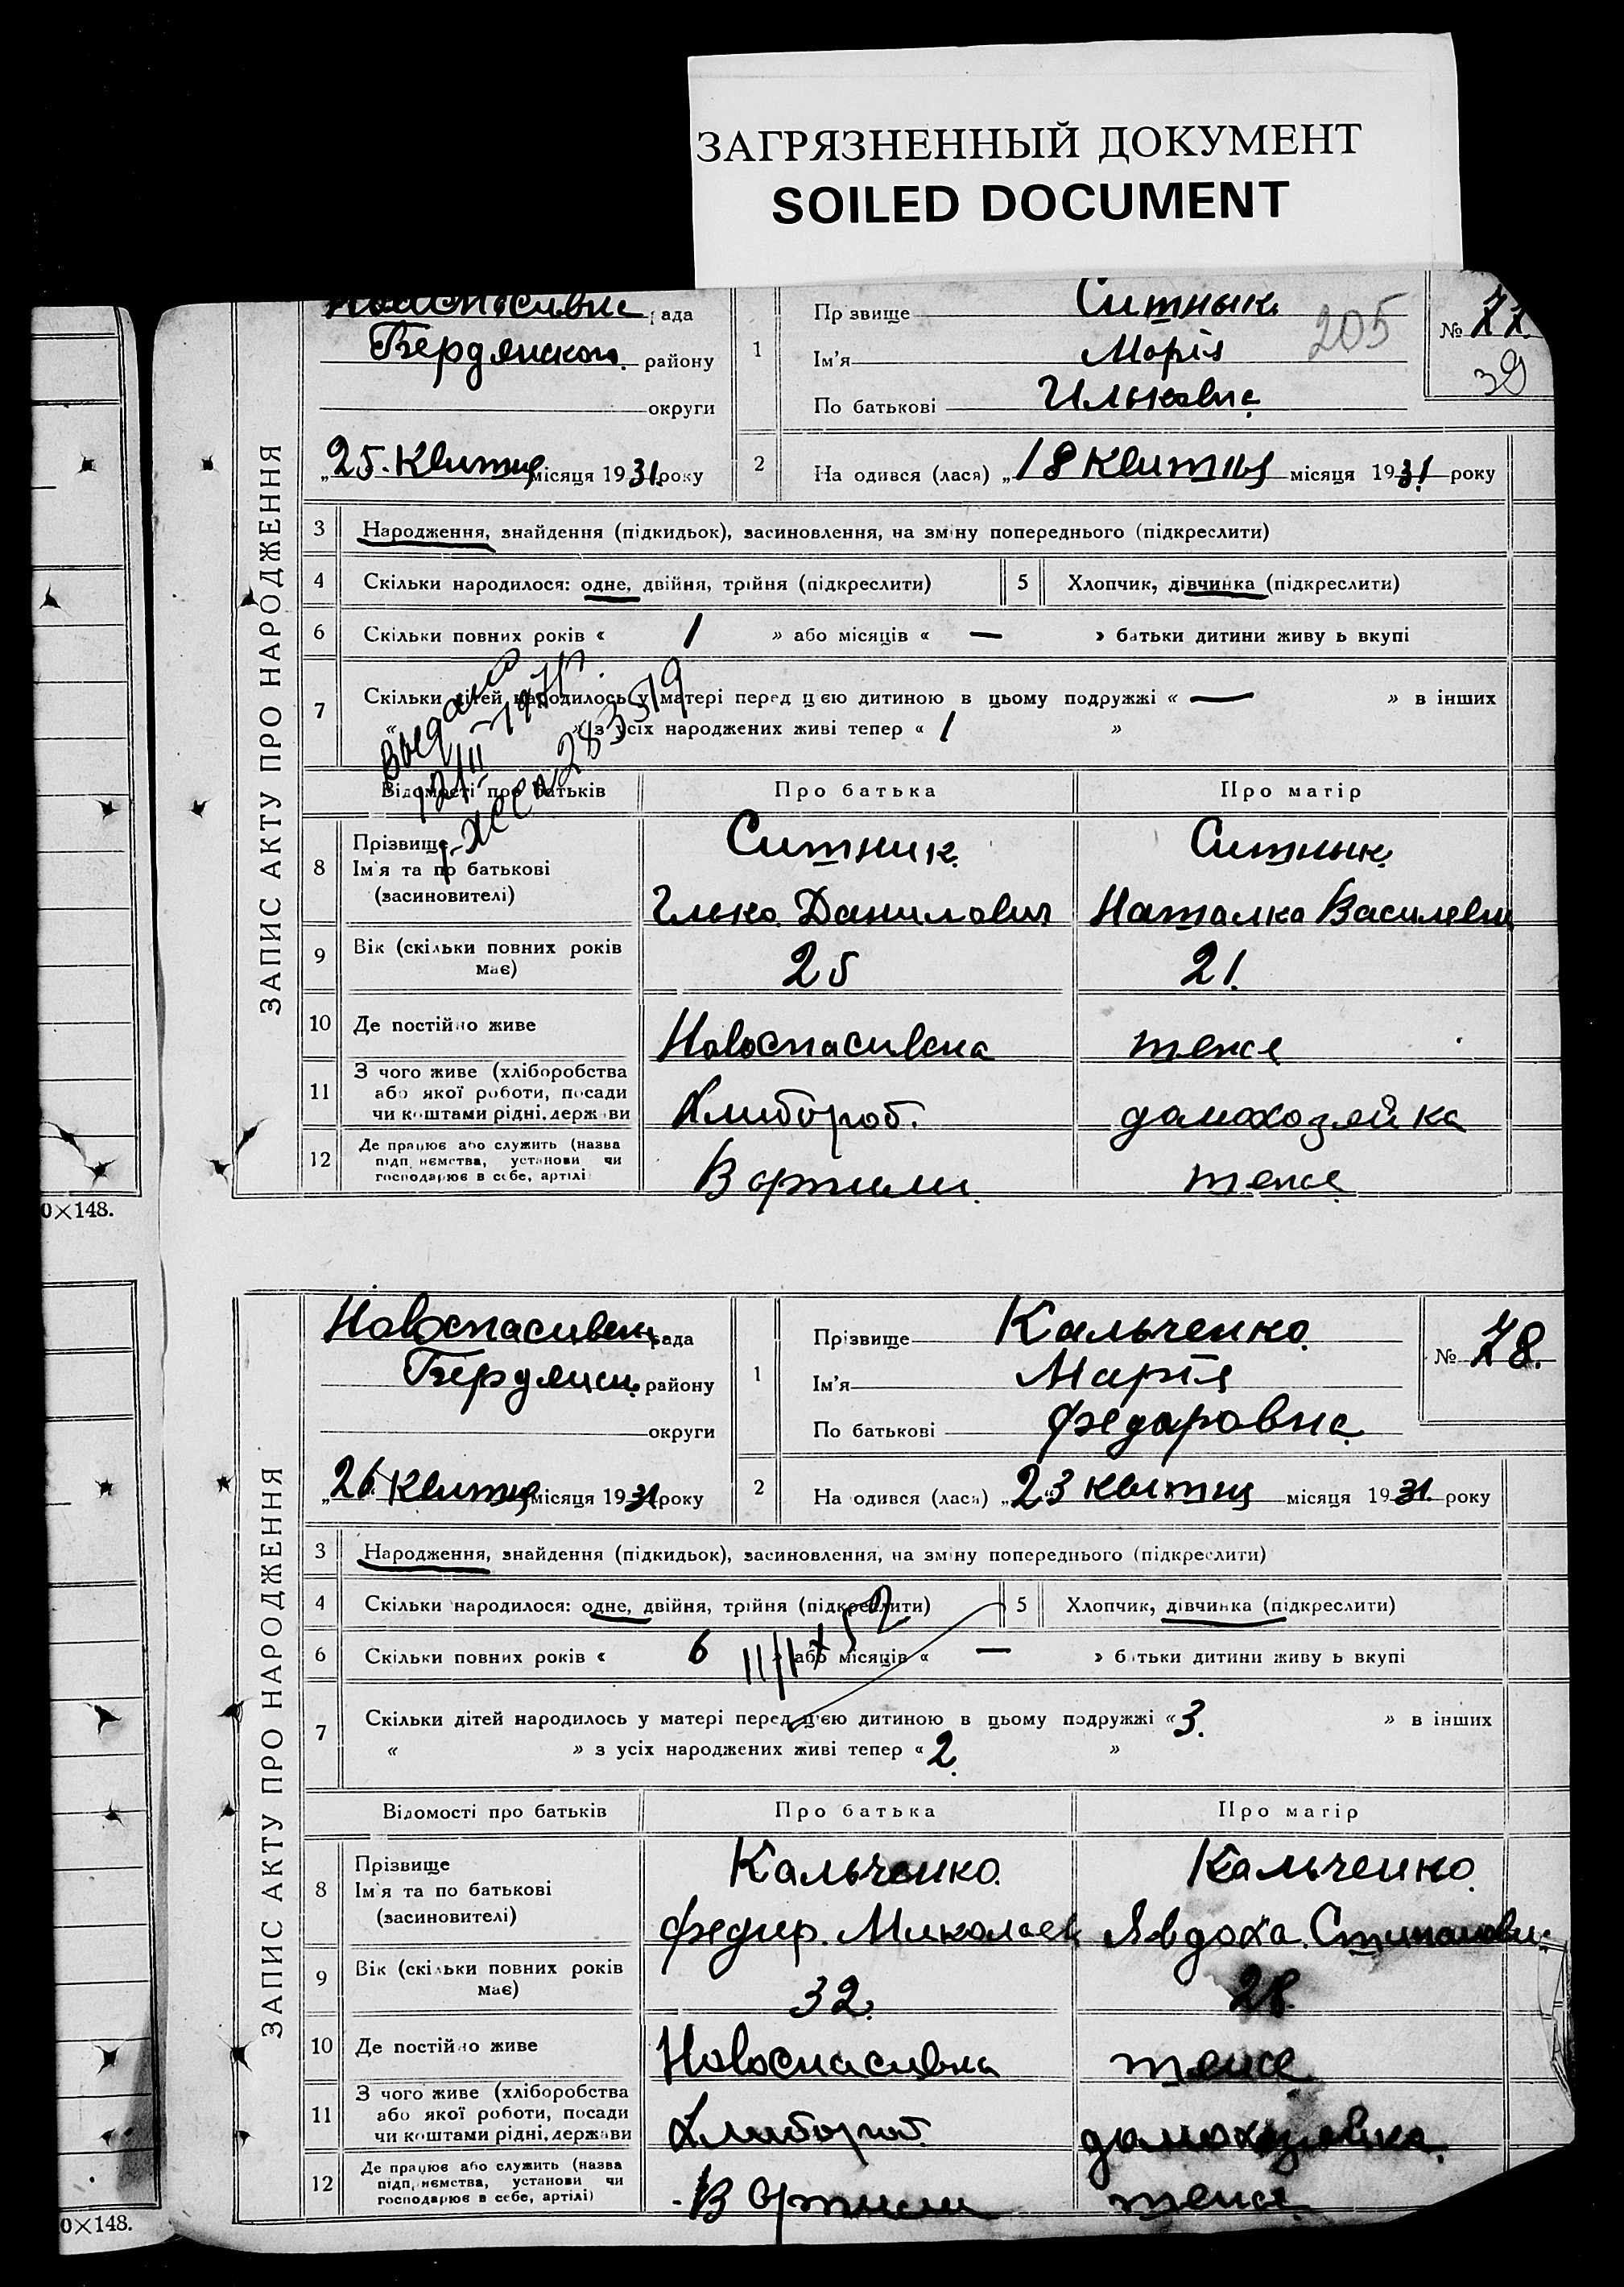 ЗАГРЯЗНЕННЫЙ ДОКУМЕНТ
SOILED DOCUMENT
рада
Бердянского району
округи
„25. Квитня місяця 1931 року
1 Прізвище Ситнык
Ім'я Морія
По батькові Ильковна
205
№ 77.
39
2 Народився (лася) „18 Квитня місяця 1931 року
ЗАПИС АКТУ ПРО НАРОДЖЕННЯ
3 Народження, знайдення (підкидьок), засиновлення, на зміну попереднього (підкреслити)
4 Скільки народилося: одне, двійня, трійня (підкреслити) 5 Хлопчик, дівчинка (підкреслити)
6 Скільки повних років « 1 » або місяців « — » батьки дитини живуть вкупі
7 Скільки дітей народилось у матері перед цією дитиною в цьому подружжі « — » в інших
« » з усіх народжених живі тепер « 1 »
Відомості про батьків Про батька Про матір
8 Прізвище Ситник. Ситнык.
Ім'я та по батькові
(засиновителі) Илько Данилович Наталка Василевна
9 Вік (скільки повних років має) 25 21.
10 Де постійно живе Новоспасивка теже
11 З чого живе (хліборобства
або якої роботи, посади
чи коштами рідні, держави Хлибороб. домохозяйка
12 Де працює або служить (назва
підприємства, установи чи
господарює в себе, артілі) В артили теже
0×148.
рада
Бердянск. району
округи
„26 Квитня місяця 1931 року
1 Прізвище Кальченко.
Ім'я Марія
По батькові Федаровна
№ 78.
2 Народився (лася) „23 квитня місяця 1931 року
ЗАПИС АКТУ ПРО НАРОДЖЕННЯ
3 Народження, знайдення (підкидьок), засиновлення, на зміну попереднього (підкреслити)
4 Скільки народилося: одне, двійня, трійня (підкреслити) 5 Хлопчик, дівчинка (підкреслити)
6 Скільки повних років « 6 » або місяців « — » батьки дитини живуть вкупі
7 Скільки дітей народилось у матері перед цією дитиною в цьому подружжі « 3. » в інших
« » з усіх народжених живі тепер « 2. »
Відомості про батьків Про батька Про матір
8 Прізвище Кальченко. Кальченко.
Ім'я та по батькові
(засиновителі) Федир. Миколаев Явдоха.
9 Вік (скільки повних років має) 32. 28.
10 Де постійно живе Новоспасивка теже
11 З чого живе (хліборобства
або якої роботи, посади
чи коштами рідні, держави Хлибороб.
12 Де працює або служить (назва
підприємства, установи чи
господарює в себе, артілі) В артили теже
0×148.